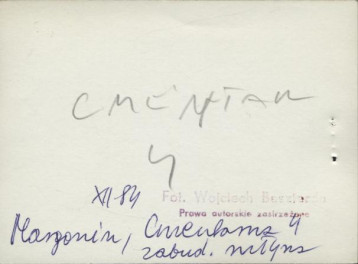 CMENTAR
4
XII 84
Fot. Wojciech
Prawa autorskie zastrzeżone
Margonin, Cmentarna 4
zabud. młyna